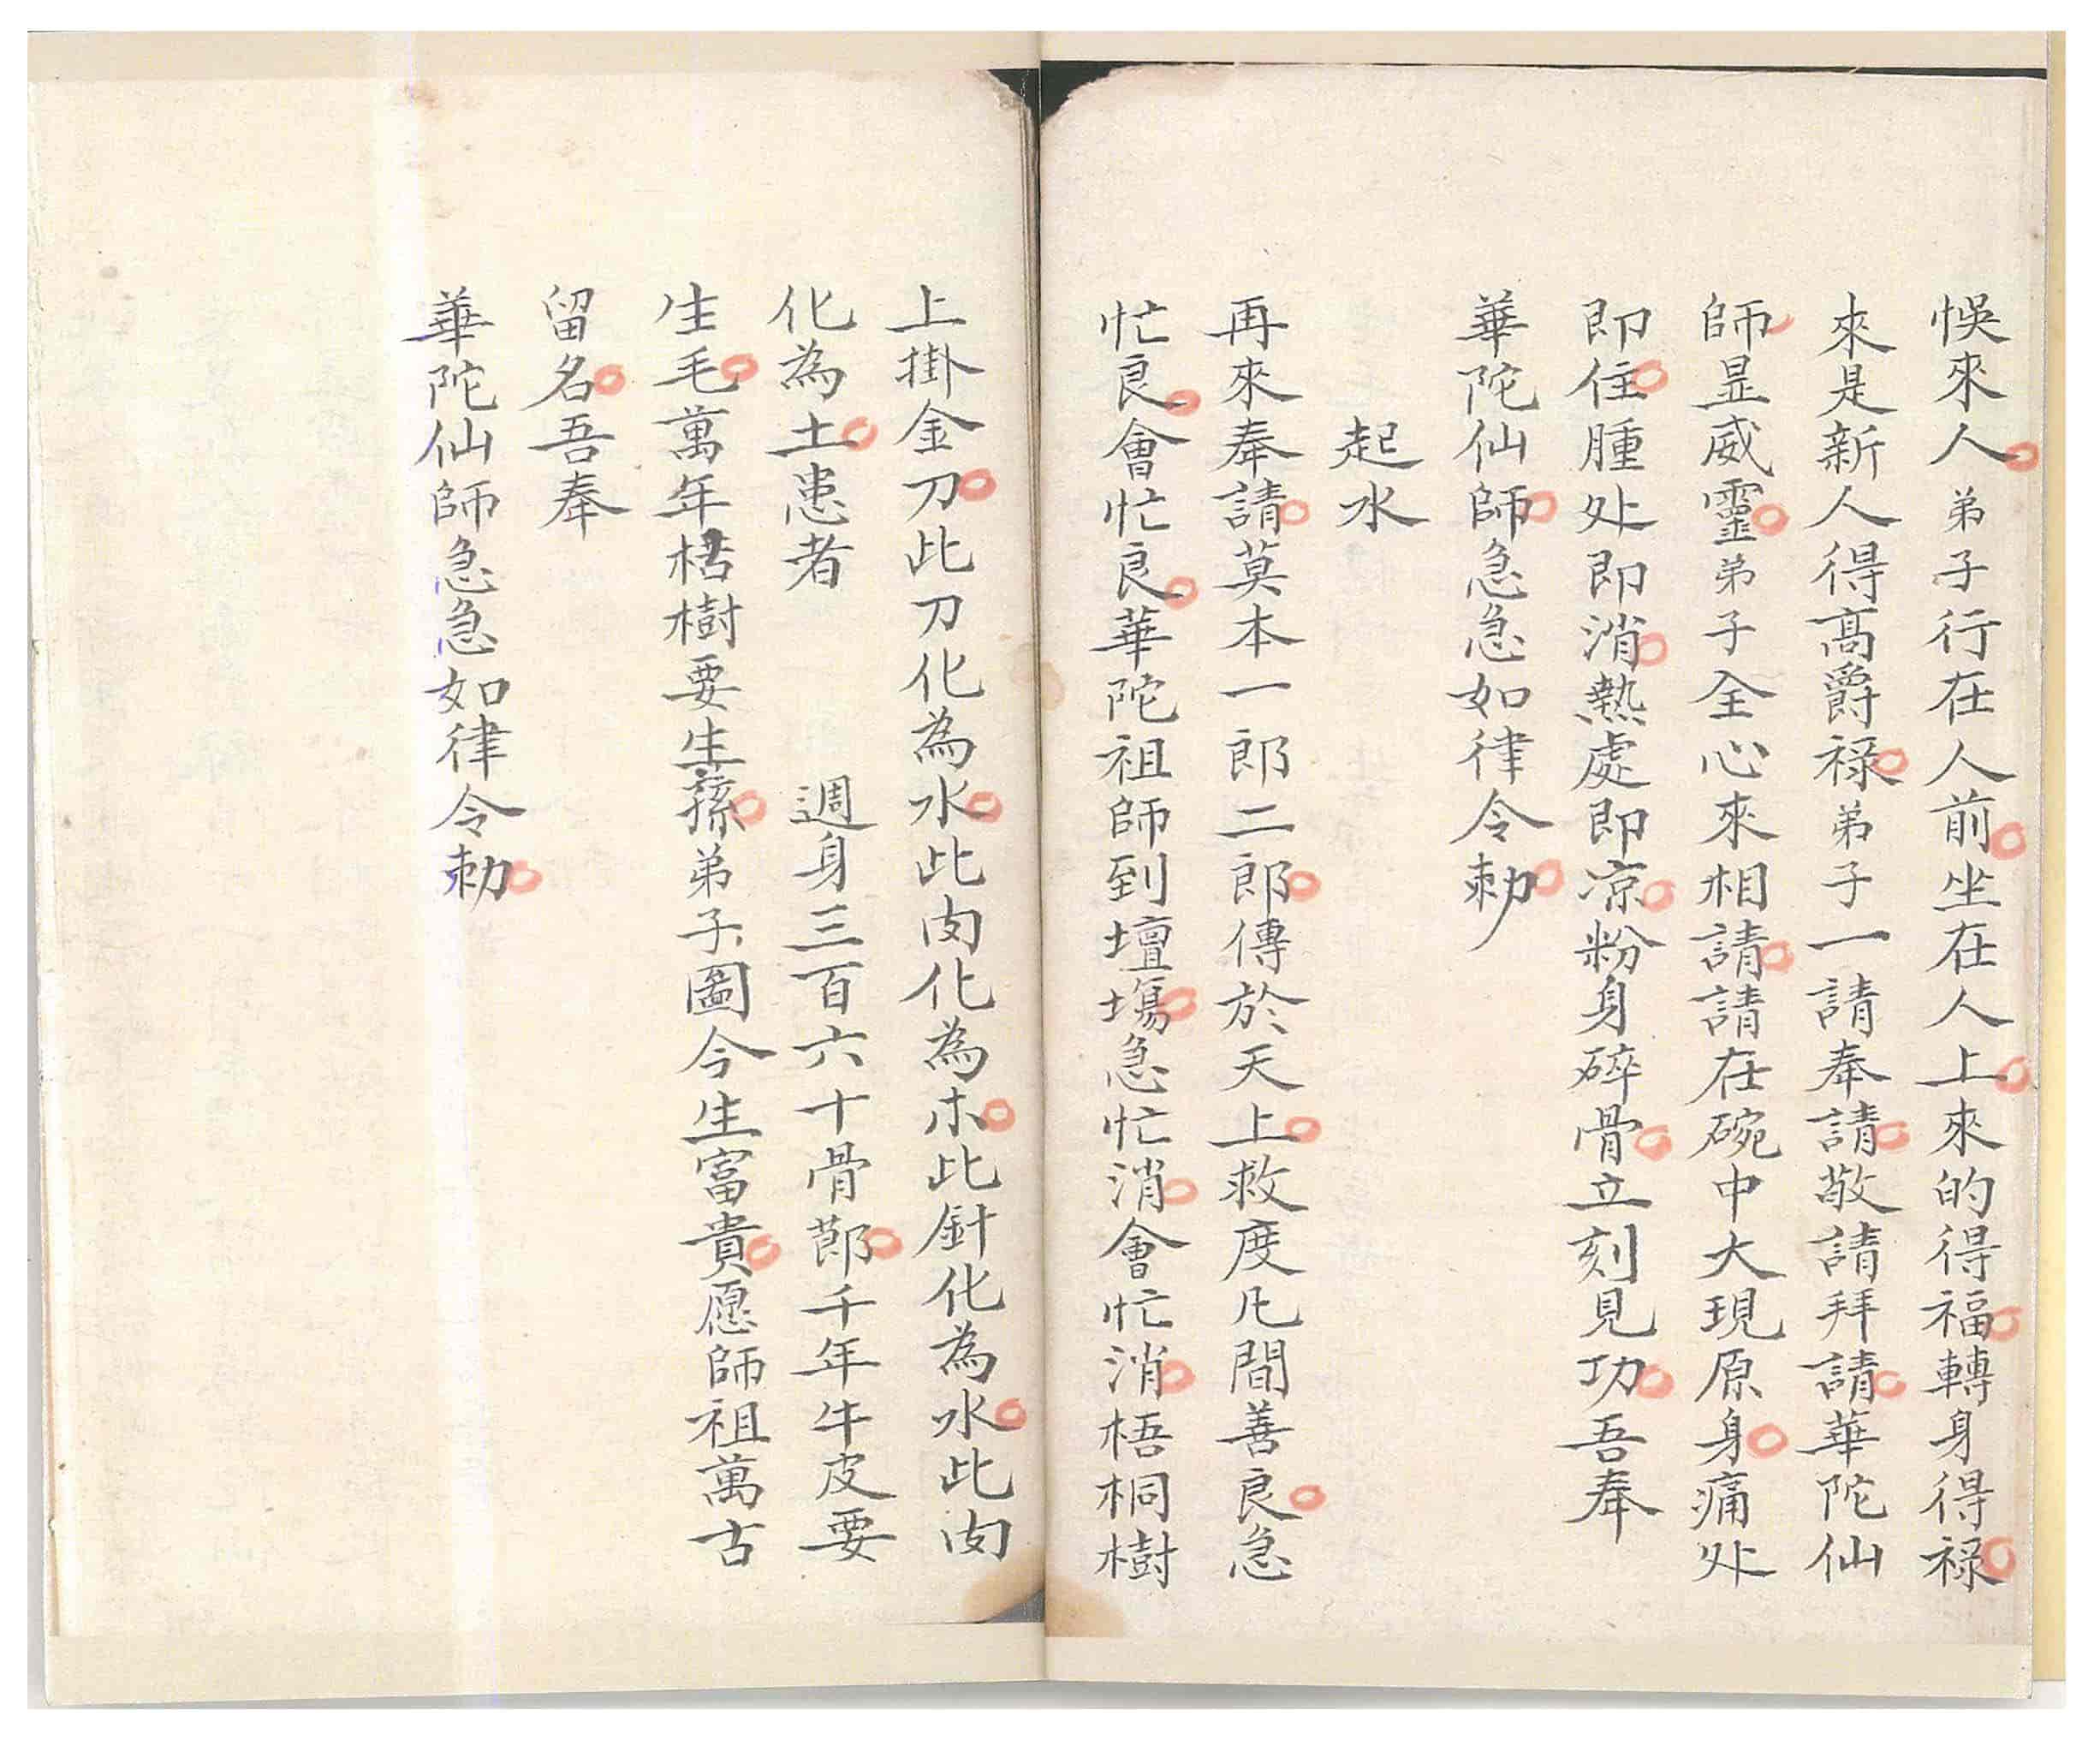 悞來人弟子行在人前坐在人上來的得福轉身得禄
來是新人得髙爵禄弟子一請奉請敬請拜請華陀仙
師显威靈弟子全心來相請請在碗中大現原身痛处
即住腫处即消熱處即凉粉身碎骨立刻見功吾奉
華陀仙師急急如律令勅
起水
再來奉請莫本一郎二郎傳於天上救度凡間善良急
忙良會忙良華陀祖師到壇塲急忙消會忙消梧桐樹
上掛金刀此刀化為水此肉化為木此針化為水此肉
化為土患者 週身三百六十骨節千年牛皮要
生毛萬年枯樹要生蓀弟子圖今生富貴愿師祖萬古
留名吾奉
華陀仙師急急如律令勅